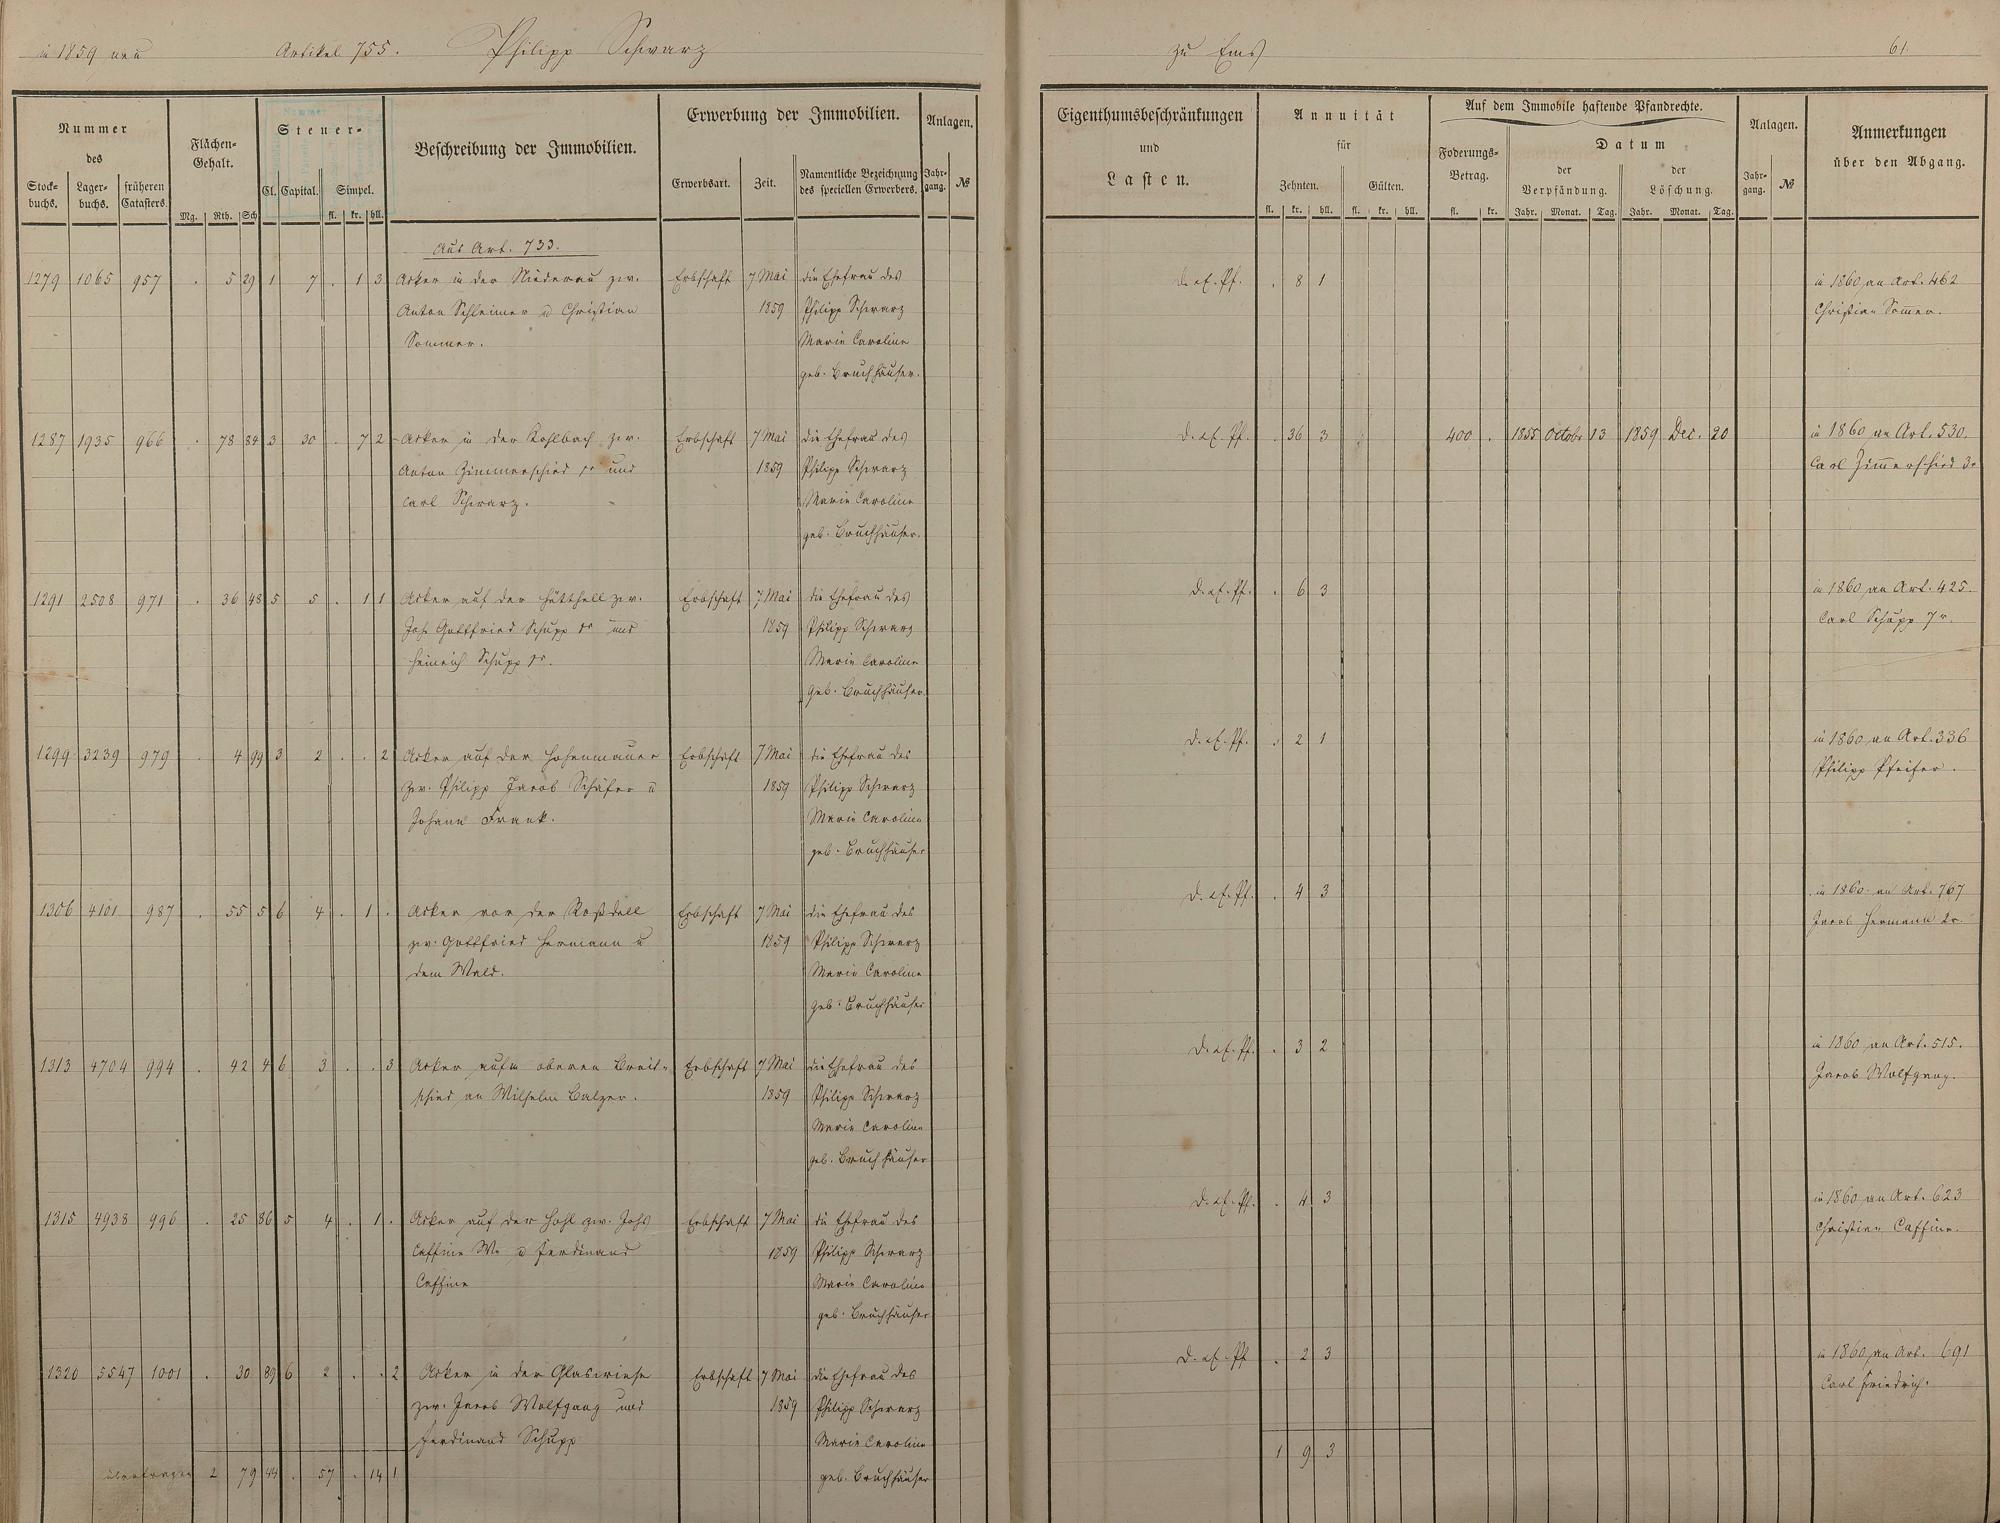 in 1859 neu Artikel 755. Philipp Schwarz zu Ems 61.
Nummer
des
Stock-
buchs.
Lager-
buchs.
früheren
Catasters.
Flächen-
Gehalt.
Mg. Rth. Sch.
Steuer-
Cl. Capital. Simpel.
fl. kr. hll.
Beschreibung der Immobilien.
Erwerbung der Immobilien.
Erwerbsart. Zeit.
Namentliche Bezeichnung
des speciellen Erwerbers.
Anlagen.
Jahr-
gang.
№
Eigenthumsbeschränkungen
und
Lasten.
Annuität
für
Zehnten. Gülten.
fl. kr. hll. fl. kr. hll.
Auf dem Immobile haftende Pfandrechte.
Foderungs-
Betrag.
fl. kr.
Datum
der
Verpfändung.
der
Löschung.
Jahr. Monat. Tag. Jahr. Monat. Tag.
Anlagen.
Jahr-
gang.
№
Anmerkungen
über den Abgang.
Aus Art. 733.
1279 1065 957 . 5 29 1 7 . 1 3 Acker in der Niederau zw. Erbschaft 7 Mai die Ehefrau des D. ef. Pf. . 8 1 in 1860 an Art. 462
Anton Schleimer u Christian 1859 Philipp Schwarz Christian Sommer.
Sommer. Marie Caroline
geb. Bruchhäuser.
1287 1935 966 . 78 84 3 30 . 7 2 Acker in der Kohlbach zw. Erbschaft 7 Mai die Ehefrau des D. ef. Pf. . 36 3 400 . 1855 Octobr 13 1859 Dec. 20 in 1860 an Art. 530.
Anton Zimmerschied und 1859 Philipp Schwarz Carl Zimmerschied 3r
Carl Schwarz. Marie Caroline
geb. Bruchhäuser.
1291 2508 971 . 36 48 5 5 . 1 1 Acker auf der Hütthell zw. Erbschaft 7 Mai die Ehefrau des D. ef. Pf. . 6 3 in 1860 an Art. 425.
Joh. Gottfried Schupp und 1859 Philipp Schwarz Carl Schupp 7r.
Heinrich Schupp Marie Caroline
geb. Bruchhäuser.
1299 3239 979 . 4 99 3 2 . . 2 Acker auf der Hohenmauer Erbschaft 7 Mai die Ehefrau des D. ef. Pf. . 2 1 in 1860 an Art. 336
zw. Philipp Jacob Schäfer u 1859 Philipp Schwarz Philipp Pfeifer.
Johann Frank. Marie Caroline
geb. Bruchhäuser
1306 4101 987 . 55 5 6 4 . 1 . Acker vor der Roßdell Erbschaft 7 Mai die Ehefrau des D. ef. Pf. . 4 3 in 1860 an Art. 767
zw. Gottfried Hermann u 1859 Philipp Schwarz Jacob Hermann 2r.
dem Wald. Marie Caroline
geb. Bruchhäuser
1313 4704 994 . 42 4 6 3 . . 3 Acker aufm oberen Breit- Erbschaft 7 Mai die Ehefrau des D. ef. Pf. . 3 2 in 1860 an Art. 515.
schied an Wilhelm Balzer. 1859 Philipp Schwarz Jacob Wolfgang.
Marie Caroline
geb. Bruchhäuser
1315 4938 996 . 25 86 5 4 . 1 . Acker auf der Hohl zw. Johs Erbschaft 7 Mai die Ehefrau des D. ef. Pf. . 4 3 in 1860 an Art. 623
Caffine We u Ferdinand 1859 Philipp Schwarz Christian Caffine.
Caffine Marie Caroline
geb. Bruchhäuser
1320 5547 1001 . 30 89 6 2 . . 2 Acker in der Glaswiese Erbschaft 7 Mai die Ehefrau des D. ef. Pf . 2 3 in 1860 an Art. 691
zw. Jacob Wolfgang und 1859 Philipp Schwarz Carl Friedrich.
Ferdinand Schupp Marie Caroline
übertragen 2 79 44 . 57 . 14 1 geb. Bruchhäuser 1 9 3